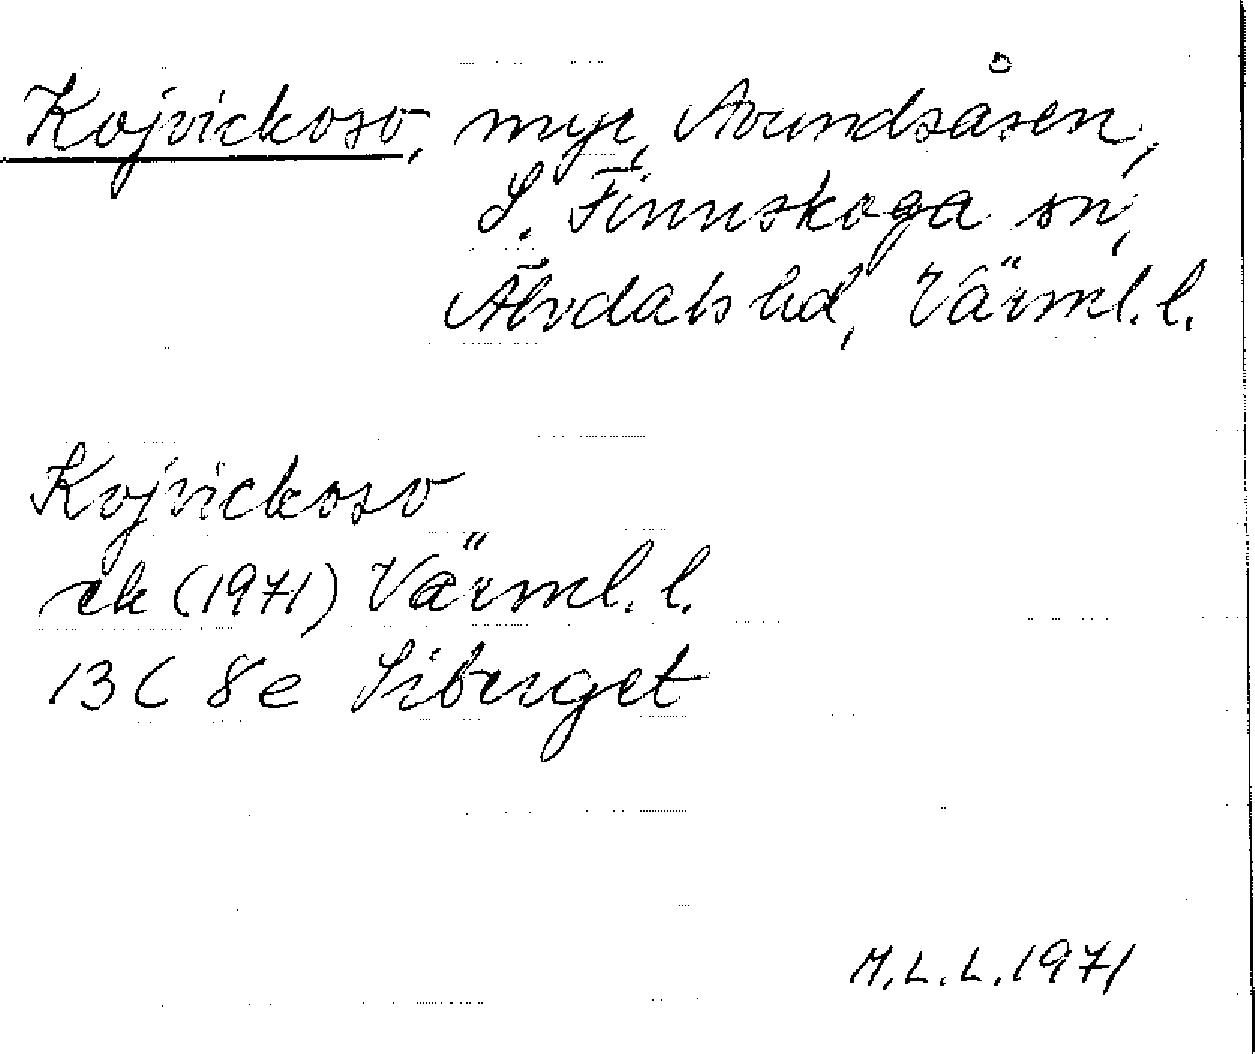 Kojvickoso, myr, Avundsåsen,
S. Finnskoga sn,
Älvdals hd, Värml. l.
Kojvickoso
ek (1971) Värml. l.
13 C 8e Siberget
M.L.L. 1971